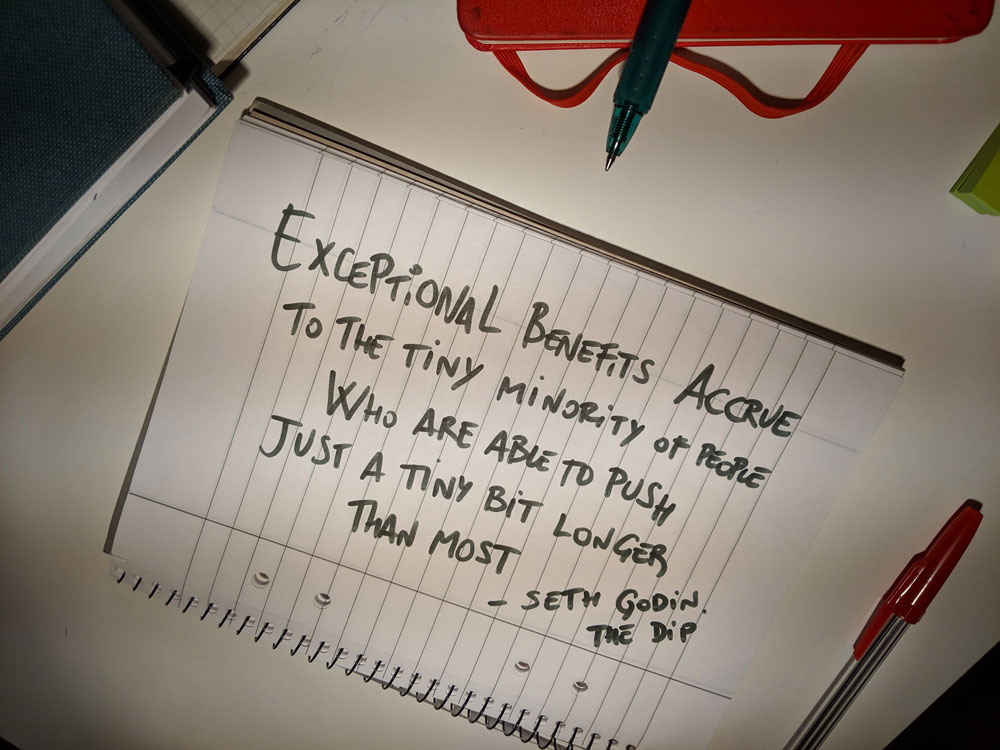 Exceptional Benefits Accrue
To the tiny minority of people
Who are able to push
Just a tiny bit longer
than most
- Seth Godin.
The Dip